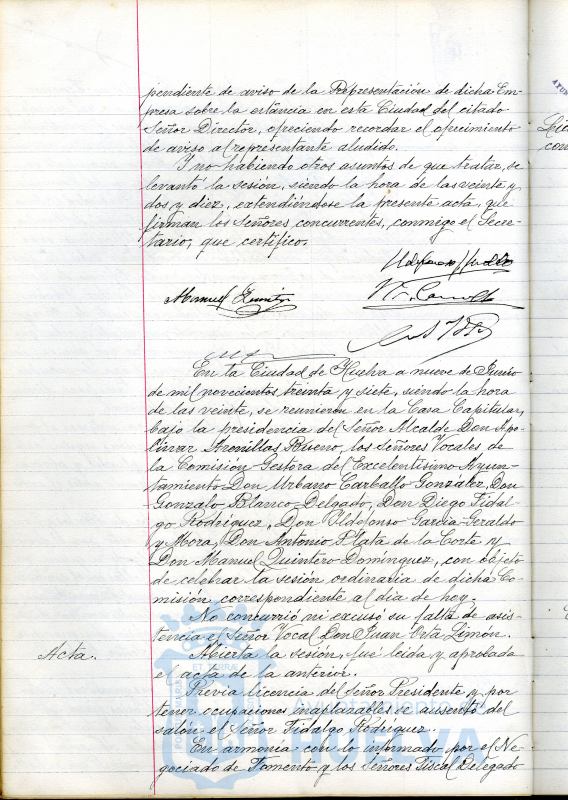 pendiente de aviso de la Representación de dicha Em-
presa sobre la estancia en esta Ciudad del citado
Señor Director, ofreciendo recordar el ofrecimiento
de aviso al representante aludido.
Y no habiendo otros asuntos de que tratar, se
levantó la sesión, siendo la hora de las veinte y
dos y diez, extendiéndose la presente acta, que
firman los Señores concurrentes, conmigo el Secre-
tario, que certifico.
Manuel
En la Ciudad de Huelva a nueve de Junio
de mil novecientos treinta y siete, siendo la hora
de las veinte, se reunieron en la Casa Capitular,
bajo la presidencia del Señor Alcalde Don Apo-
linar Arenillas Bueno, los Señores Vocales de
la Comisión Gestora del Excelentísimo Ayun-
tamiento Don Urbano Carballo González, Don
Gonzalo Blanco Delgado, Don Diego Fidal-
go Rodríguez, Don Ildefonso García-Geraldo
y Mora, Don Antonio Mata de la Corte y
Don Manuel Quintero Domínguez, con objeto
de celebrar la sesión ordinaria de dicha Co-
misión correspondiente al día de hoy.
No concurrió ni excusó su falta de asis-
tencia el Señor Vocal Don Juan Orta Limón.
Acta.
Abierta la sesión, fué leída y aprobada
el acta de la anterior.
Previa licencia del Señor Presidente y por
tener ocupaciones inaplazables se ausentó del
salón el Señor Fidalgo Rodríguez.
En armonía con lo informado por el Ne-
gociado de Fomento y los Señores Fiscal Delegado